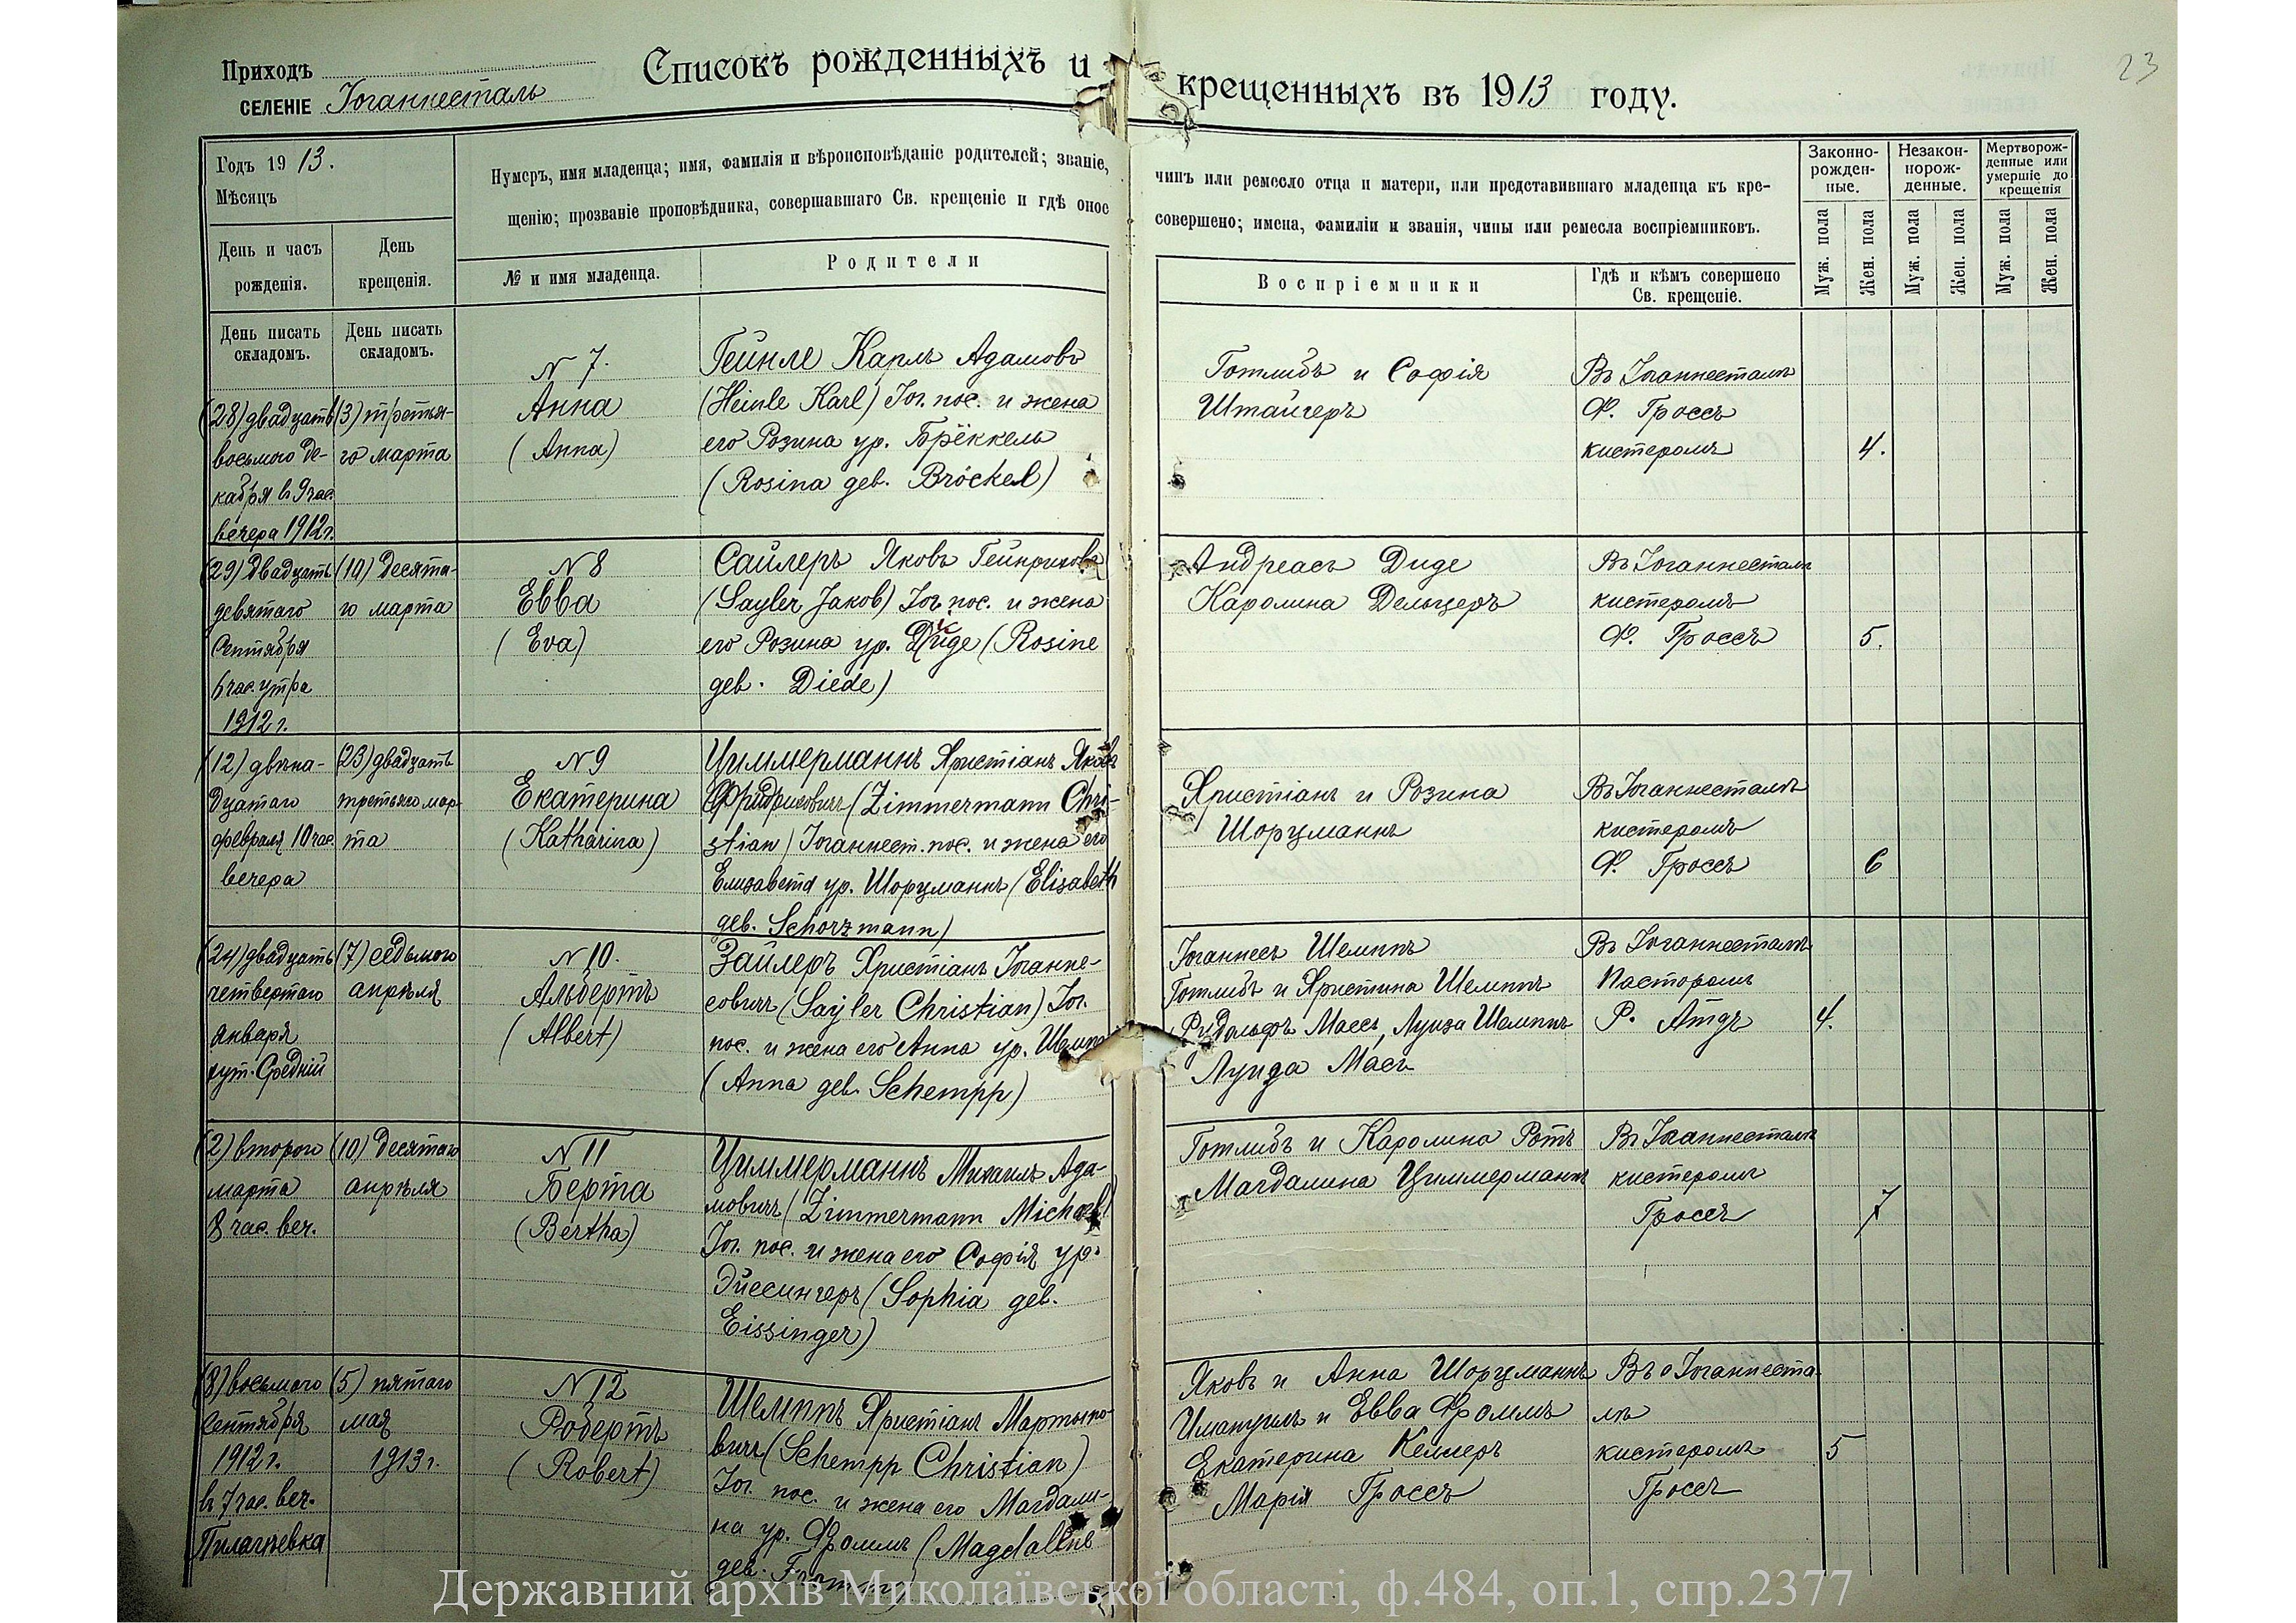 23
Приходъ
СЕЛЕНІЕ Іоганнесталь
Списокъ рожденныхъ и крещенныхъ въ 1913 году.
Годъ 1913.
Мѣсяцъ
День и часъ рожденія.
День крещенія.
Нумеръ, имя младенца; имя, фамилія и вѣроисповѣданіе родителей; званіе, чинъ или ремесло отца и матери, или представившаго младенца къ кре-
щенію; прозваніе проповѣдника, совершавшаго Св. крещеніе и гдѣ оное совершено; имена, фамиліи и званія, чины или ремесла воспріемниковъ.
№ и имя младенца.
Родители
Воспріемники
Гдѣ и кѣмъ совершено Св. крещеніе.
Законно-
рожден-
ные.
Незакон-
норож-
денные.
Мертворож-
денные или
умершіе до
крещенія
Муж. пола
Жен. пола
Муж. пола
Жен. пола
Муж. пола
Жен. пола
День писать складомъ.
День писать складомъ.
(28) двадцать
восьмого де-
кабря в 9 час.
вечера 1912 г.
(3) третья-
го марта
N 7.
Анна
(Anna)
Гейнле Карлъ Адамовъ
(Heinle Karl) Іог. пос. и жена
его Розина ур. Брёккель
(Rosina geb. Bröckel)
Готлибъ и Софія
Штайгеръ
Въ Іоганнесталѣ
Ф. Гроссъ
кистеромъ
4.
(29) двадцать
девятаго
Сентября
6 час. утра
1912 г.
(10) десята-
го марта
N 8
Евва
(Eva)
Сайлеръ Яковъ Гейнриховъ
(Sayler Jakob) Іог. пос. и жена
его Розина ур. Диде (Rosine
geb. Diede)
Андреасъ Диде
Каролина Дельцеръ
Въ Іоганнесталѣ
кистеромъ
Ф. Гроссъ
5.
(12) двѣна-
дцатаго
февраля 10 час.
вечера
(23) двадцать
третьяго мар-
та
N 9
Екатерина
(Katharina)
Циммерманнъ Христіанъ Яковъ
Фридриховичъ (Zimmermann Chri-
stian) Іоганнест. пос. и жена его
Елизавета ур. Шорцманнъ (Elisabeth
geb. Schorzmann)
Христіанъ и Розина
Шорцманнъ
Въ Іоганнесталѣ
кистеромъ
Ф. Гроссъ
6
(24) двадцать
четвертаго
января
хут. Средній
(7) седьмого
апрѣля
N 10.
Альбертъ
(Albert)
Зайлеръ Христіанъ Іоганне-
совичъ (Sayler Christian) Іог.
пос. и жена его Анна ур. Шемпп
(Anna geb. Schempp)
Іоганнесъ Шемппъ
Готлибъ и Христина Шемппъ
Рудольфъ Маасъ, Луиза Шемппъ
Маасъ
Въ Іоганнесталѣ
Пасторомъ
Р.
4.
(2) второго
марта
8 час. веч.
(10) десятаго
апрѣля
N 11
Берта
(Bertha)
Циммерманнъ Михаилъ Ада-
мовичъ (Zimmermann Michael)
Іог. пос. и жена его Софія ур.
Эйссингеръ (Sophia geb.
Eissinger)
Готлибъ и Каролина Ротъ
Магдалина Циммерманнъ
Въ Іоганнесталѣ
кистеромъ
Гроссъ
7
(8) восьмого
сентября
1912 г.
в 7 час. веч.
(5) пятаго
мая
1913 г.
N 12
Робертъ
(Robert)
Шемппъ Христіанъ Мартыно-
вичъ (Schempp Christian)
Іог. пос. и жена его Магдали-
на ур. Фроммъ (Magdalene
geb. Fromm)
Яковъ и Анна Шорцманнъ
Имануилъ и Евва Фроммъ
Екатерина Келлеръ
Марія Гроссъ
Въ Іоганнеста-
лѣ
кистеромъ
Гроссъ
5
Державний архів Миколаївської області, ф.484, оп.1, спр.2377